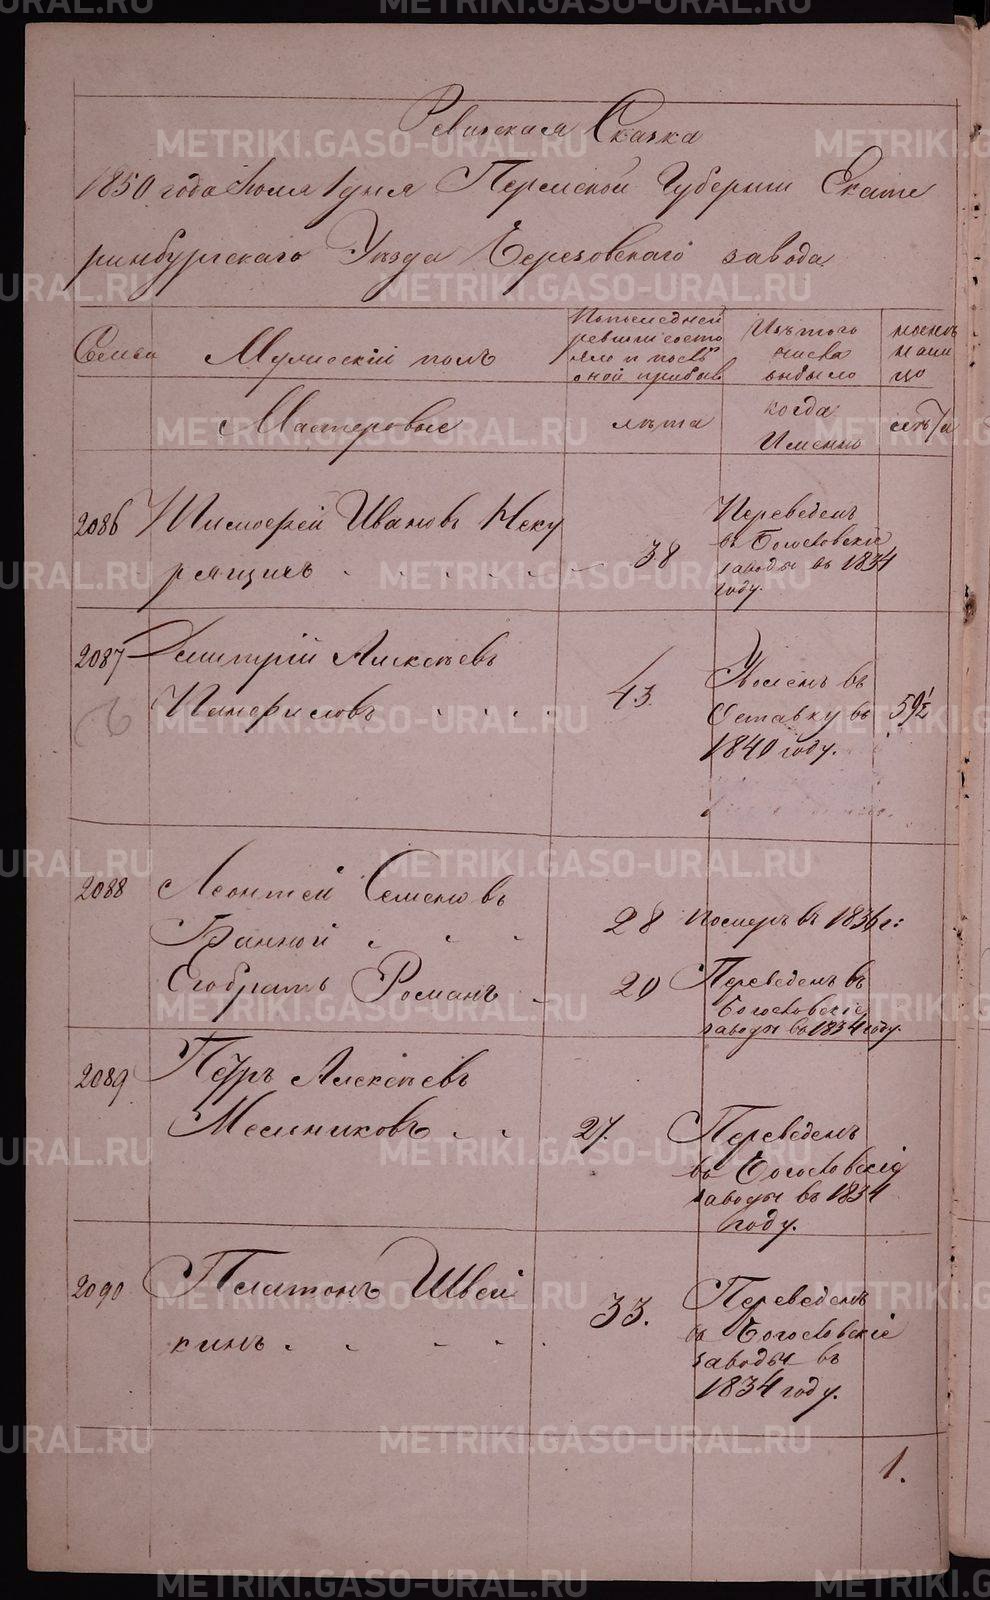 Ревизская Сказка
1850 года Июля 1 дня Пермской Губернии Екате
ринбургскаго Уезда Березовскаго завода
Семьи
Мужеский полъ
По последней
ревизии состо
яло и после
оной прибыв
Изъ того
числа
выбыло
ныне
нали
цо
Мастеровые
лета
когда
Именно
лета
2086 Тимофей Ивановъ Неку
рящихъ 38
Переведенъ
въ Богословскіе
заводы въ 1834
году.
2087 Дмитрій Алексеевъ
Панфиловъ 43.
Уволенъ въ
Отставку въ 59½
1840 году.
2088 Леонтей Семеновъ
Гранной 28 Померъ въ 1836 г:
Его братъ Романъ 20 Переведенъ въ
Богословскіе
заводы въ 1834 году.
2089 Петръ Алексеевъ
Мельниковъ 27. Переведенъ
въ Богословскіе
заводы въ 1834
году.
2090 Платонъ Швей
кинъ 33. Переведенъ
въ Богословскіе
заводы въ
1834 году.
1.
METRIKI.GASO-URAL.RU